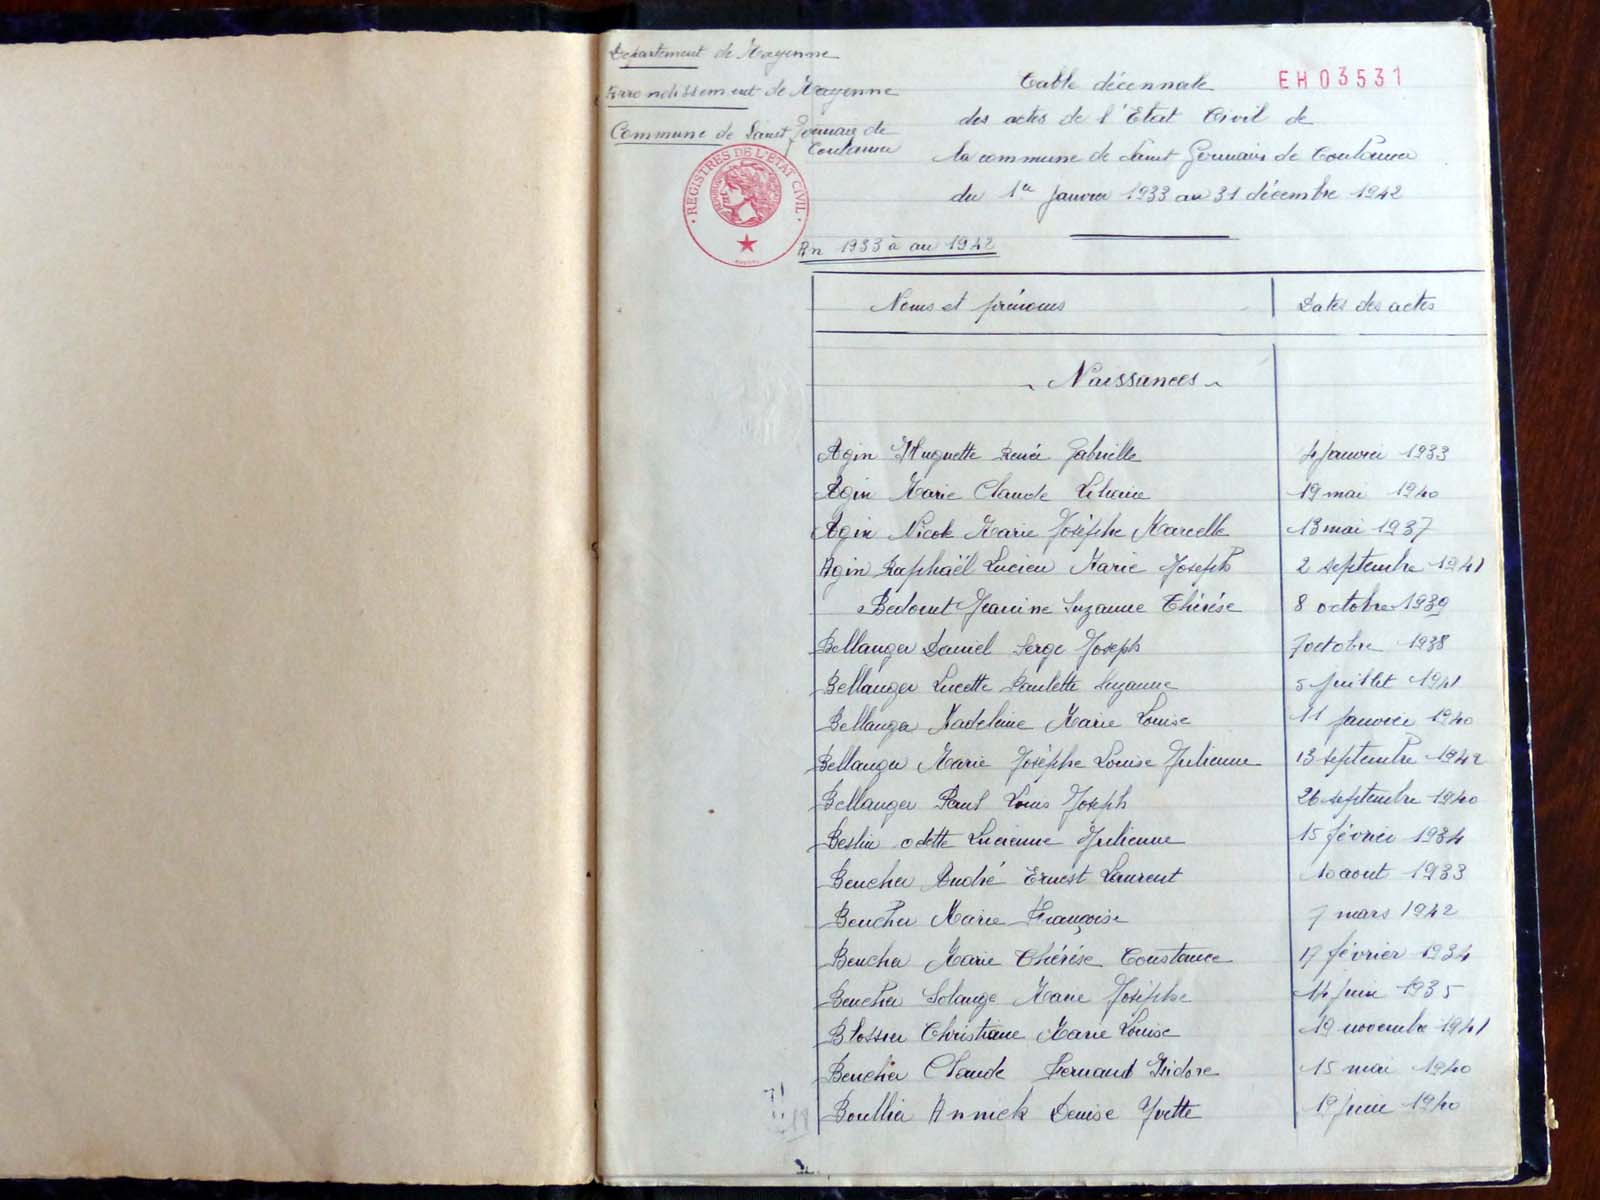 Département de Mayenne
Arrondissement de Mayenne
Commune de Saint Germain de
Coulamer
REGISTRES DE L'ETAT CIVIL
Table décennale
EH03531
des actes de l'Etat Civil de
la commune de Saint Germain de Coulamer
du 1er Janvier 1933 au 31 décembre 1942
An 1933 à au 1942
Noms et prénoms Dates des actes
Naissances
Agin Huguette Renée Gabrielle 4 Janvier 1933
Agin Marie Claude Liliane 19 mai 1940
Agin Nicole Marie Josèphe Marcelle 13 mai 1937
Agin Raphaël Lucien Marie Joseph 2 septembre 1941
Bedouet Jeannine Suzanne Thérèse 8 octobre 1939
Bellanger Daniel Serge Joseph 7 octobre 1938
Bellanger Lucette Paulette Suzanne 5 Juillet 1941
Bellanger Madeleine Marie Louise 11 Janvier 1940
Bellanger Marie Josèphe Louise Julienne 13 septembre 1942
Bellanger Paul Louis Joseph 26 septembre 1940
Beslin odette Lucienne Julienne 15 février 1934
Beucher André Ernest Laurent 10 aout 1933
Beucher Marie Françoise 7 mars 1942
Beucher Marie Thérèse Constance 17 février 1934
Beucher Solange Marie Josèphe 14 Juin 1935
Blossier Christiane Marie Louise 19 novembre 1941
Beucher Claude Fernand Isidore 15 mai 1940
Boullier Annick Denise Yvette 19 Juin 1940